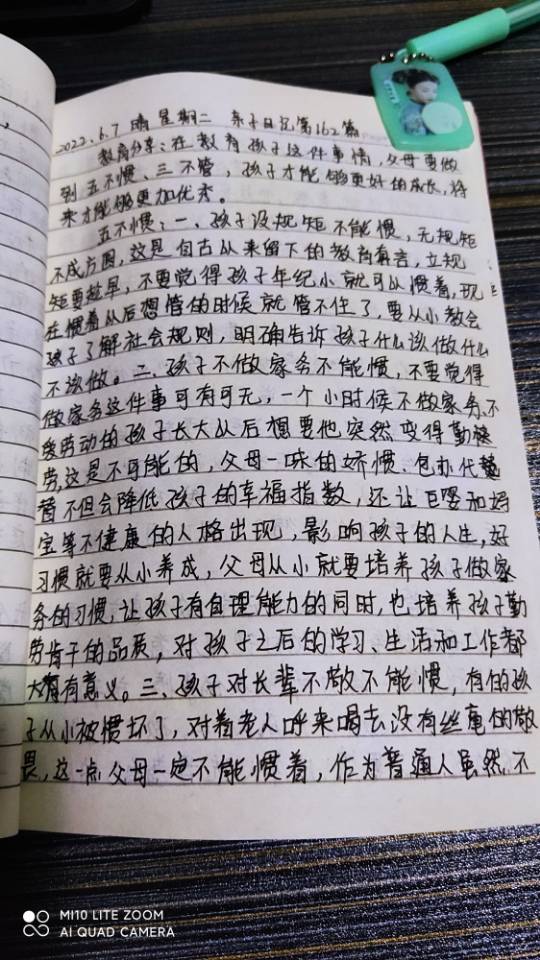 2022.6.7 晴 星期二 亲子日记第162篇
教育分享:在教育孩子这件事情,父母要做
到五不惯、三不管,孩子才能够更好的成长,将
来才能够更加优秀。
五不惯:一、孩子没规矩不能惯,无规矩
不成方圆,这是自古从来留下的教育真言,立规
矩要趁早,不要觉得孩子年纪小就可以惯着,现
在惯着从后想管的时候就管不住了,要从小教会
孩子了解社会规则,明确告诉孩子什么该做什么
不该做。二、孩子不做家务不能惯,不要觉得
做家务这件事可有可无,一个小时候不做家务、不
爱劳动的孩子长大从后想要他突然变得勤
劳,这是不可能的,父母一味的娇惯、包办代
替不但会降低孩子的幸福指数,还让巨婴和妈
宝等不健康的人格出现,影响孩子的人生,好
习惯就要从小养成,父母从小就要培养孩子做家
务的习惯,让孩子有自理能力的同时,也培养孩子勤
劳肯干的品质,对孩子之后的学习、生活和工作都
大有意义。三、孩子对长辈不敬不能惯,有的孩
子从小被惯坏了,对着老人呼来喝去没有丝毫的敬
畏,这一点父母一定不能惯着,作为普通人虽然不
MI10 LITE ZOOM
AI QUAD CAMERA